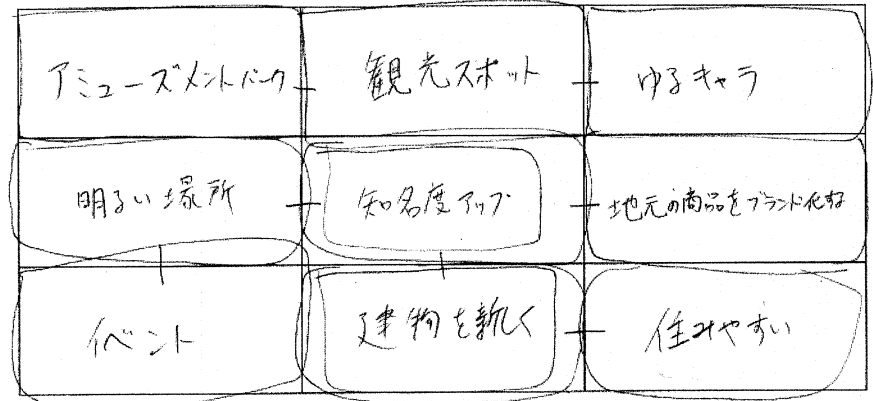 アミューズメントパーク
観光スポット
ゆるキャラ
明るい場所
知名度アップ
地元の商品をブランド化する
イベント
建物を新しく
住みやすい